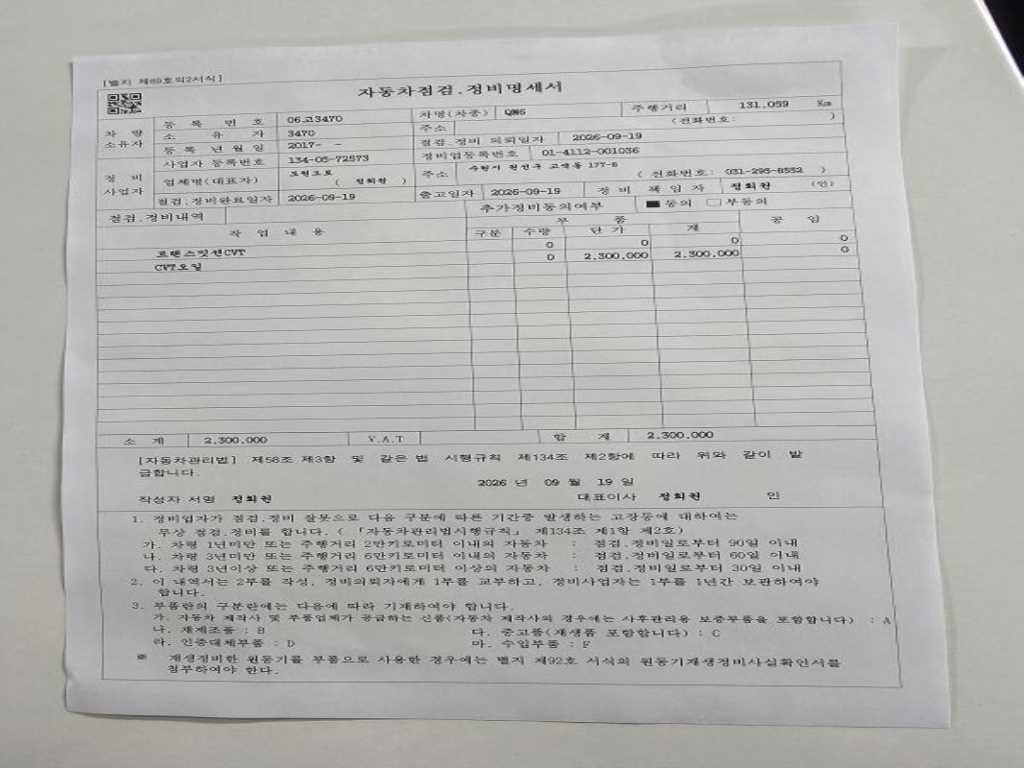 [별지 제89호의2서식]
자동차점검.정비명세서
차 량 소유자
등 록 번 호 06.고3470 차명(차종) QM6 주행거리 131,059 Km
소 유 자 3470 주소 (전화번호: )
등 록 년 월 일 2017- - 점검.정비 의뢰일자 2026-09-19
정 비 사업자
사업자 등록번호 134-05-72573 정비업등록번호 01-4112-001036
업체명(대표자) ( 정회원 ) 주소 수원시 권선구 177-8 ( 전화번호: 031-295-8552 )
점검.정비완료일자 2026-09-19 출고일자 2026-09-19 정 비 책 임 자 정회원 (인)
점검.정비내역 추가정비동의여부 ■ 동의 □ 부동의
작 업 내 용 부 품 공 임
구분 수량 단 가 계
트랜스밋션CVT 0 0 0 0
CVT오일 0 2,300,000 2,300,000 0
소 계 2,300,000 V.A.T 합 계 2,300,000
[자동차관리법] 제58조 제3항 및 같은 법 시행규칙 제134조 제2항에 따라 위와 같이 발
급합니다.
2026 년 09 월 19 일
작성자 서명 정회원 대표이사 정회원 인
1. 정비업자가 점검.정비 잘못으로 다음 구분에 따른 기간중 발생하는 고장등에 대하여는
무상 점검.정비를 합니다. ( 「자동차관리법시행규칙」 제134조 제1항 제2호)
가. 차령 1년미만 또는 주행거리 2만키로미터 이내의 자동차 : 점검.정비일로부터 90일 이내
나. 차령 3년미만 또는 주행거리 6만키로미터 이내의 자동차 : 점검.정비일로부터 60일 이내
다. 차령 3년이상 또는 주행거리 6만키로미터 이상의 자동차 : 점검.정비일로부터 30일 이내
2. 이 내역서는 2부를 작성, 정비의뢰자에게 1부를 교부하고, 정비사업자는 1부를 1년간 보관하여야
합니다.
3. 부품란의 구분란에는 다음에 따라 기재하여야 합니다.
가. 자동차 제작사 및 부품업체가 공급하는 신품(자동차 제작사의 경우에는 사후관리용 보증부품을 포함합니다) : A
나. 재제조품 : B 다. 중고품(재생품 포함합니다) : C
라. 인증대체부품 : D 마. 수입부품 : F
※ 재생정비한 원동기를 부품으로 사용한 경우에는 별지 제92호 서식의 원동기재생정비사실확인서를
첨부하여야 한다.